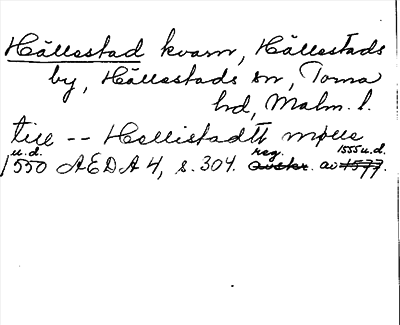 Hällestad kvarn, Hällestads
by, Hällestads sn, Torna
hd, Malm. l.
till -- Hellistadtt mølle
u.d. reg. 1555 u.d.
1550 AEDA 4, s. 304. avskr. av 1577.